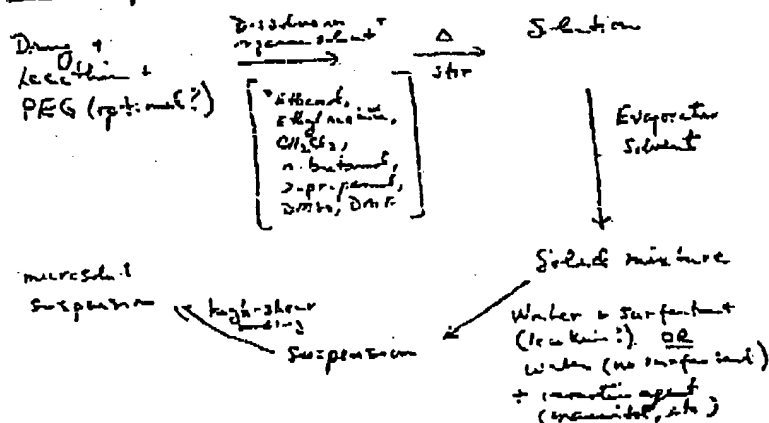 Drug +
Lecithin +
PEG (optional?)
Dissolve in
organic solvent *
[ * Ethanol,
Ethyl
CH₂Cl₂,
n-butanol,
2-propanol,
DMSO, DMF ]
Δ
stir
Solution
Evaporate
Solvent
Solid mixture
Water + surfactant
(lecithin?) OR
water (no surfactant)
+ agent
(mannitol, etc)
Suspension
high-shear
mixing
suspension